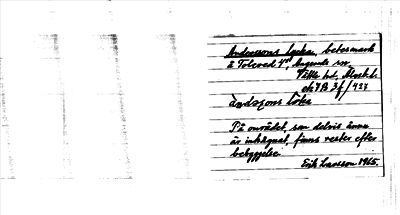 Anderssons lycka, betesmark
å Tolered 4st, Angereds sn,
Vättle hd, Älvsb.l.
ek 7B 3f/437
àndaʂons löka
På området, som delvis ännu
är inhägnat, finns rester efter
bebyggelse.
Erik Larsson 1965.